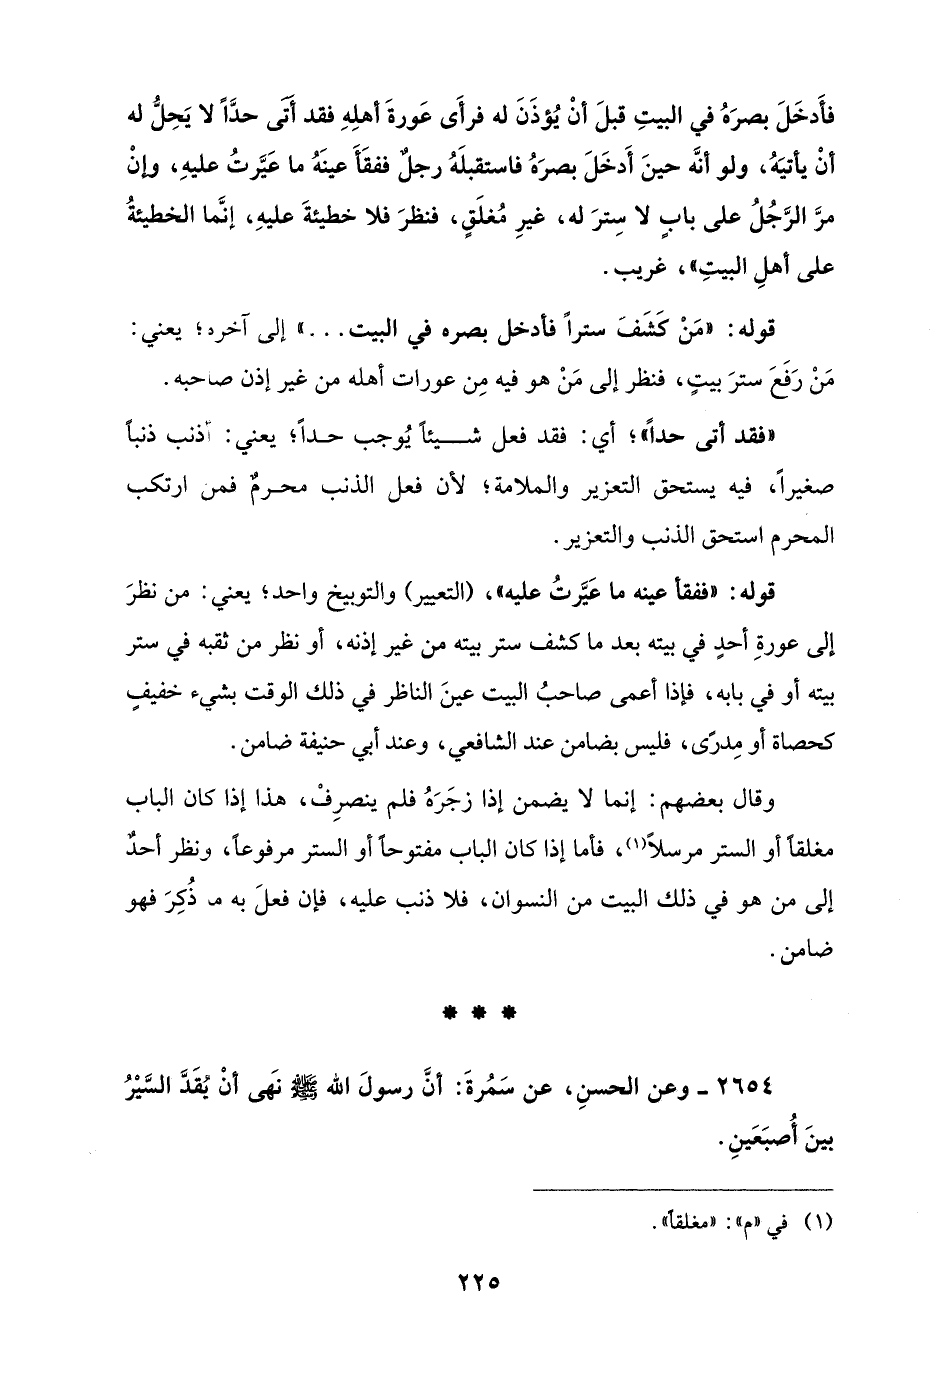 فأَدخَلَ بصرَهُ في البيتِ قبلَ أنْ يُؤذَنَ له فرأى عَورةَ أهلِهِ فقد أَتَى حدَّاً لا يَحِلُّ له
أنْ يأتيَهُ، ولو أنَّه حينَ أَدخَلَ بصرَهُ فاستقبلَهُ رجلٌ ففقَأَ عينَهُ ما عَيَّرتُ عليهِ، وإنْ
مرَّ الرَّجُلُ على بابٍ لا سِترَ له، غيرِ مُغلَقٍ، فنظرَ فلا خطيئةَ عليهِ، إنَّما الخطيئةُ
على أهلِ البيتِ»، غريب.
قوله: «مَنْ كَشَفَ ستراً فأدخل بصره في البيت...» إلى آخره؛ يعني:
مَنْ رَفَعَ سترَ بيتٍ، فنظر إلى مَنْ هو فيه مِن عورات أهله من غير إذن صاحبه.
«فقد أتى حداً»؛ أي: فقد فعل شيئاً يُوجب حداً؛ يعني: أذنب ذنباً
صغيراً، فيه يستحق التعزير والملامة؛ لأن فعل الذنب محرمٌ فمن ارتكب
المحرم استحق الذنب والتعزير.
قوله: «ففقأ عينه ما عَيَّرتُ عليه»، (التعيير) والتوبيخ واحد؛ يعني: من نظرَ
إلى عورةِ أحدٍ في بيته بعد ما كشف ستر بيته من غير إذنه، أو نظر من ثقبه في ستر
بيته أو في بابه، فإذا أعمى صاحبُ البيت عينَ الناظر في ذلك الوقت بشيء خفيفٍ
كحصاة أو مِدرًى، فليس بضامن عند الشافعي، وعند أبي حنيفة ضامن.
وقال بعضهم: إنما لا يضمن إذا زجَرَهُ فلم ينصرِفْ، هذا إذا كان الباب
مغلقاً أو الستر مرسلاً(١)، فأما إذا كان الباب مفتوحاً أو الستر مرفوعاً، ونظر أحدٌ
إلى من هو في ذلك البيت من النسوان، فلا ذنب عليه، فإن فعلَ به ما ذُكِرَ فهو
ضامن.
* * *
٢٦٥٤ - وعن الحسنِ، عن سَمُرةَ: أنَّ رسولَ الله ﷺ نَهى أنْ يُقَدَّ السَّيْرُ
بينَ أُصبَعَينِ.
(١) في «م»: «مغلقاً».
٢٢٥